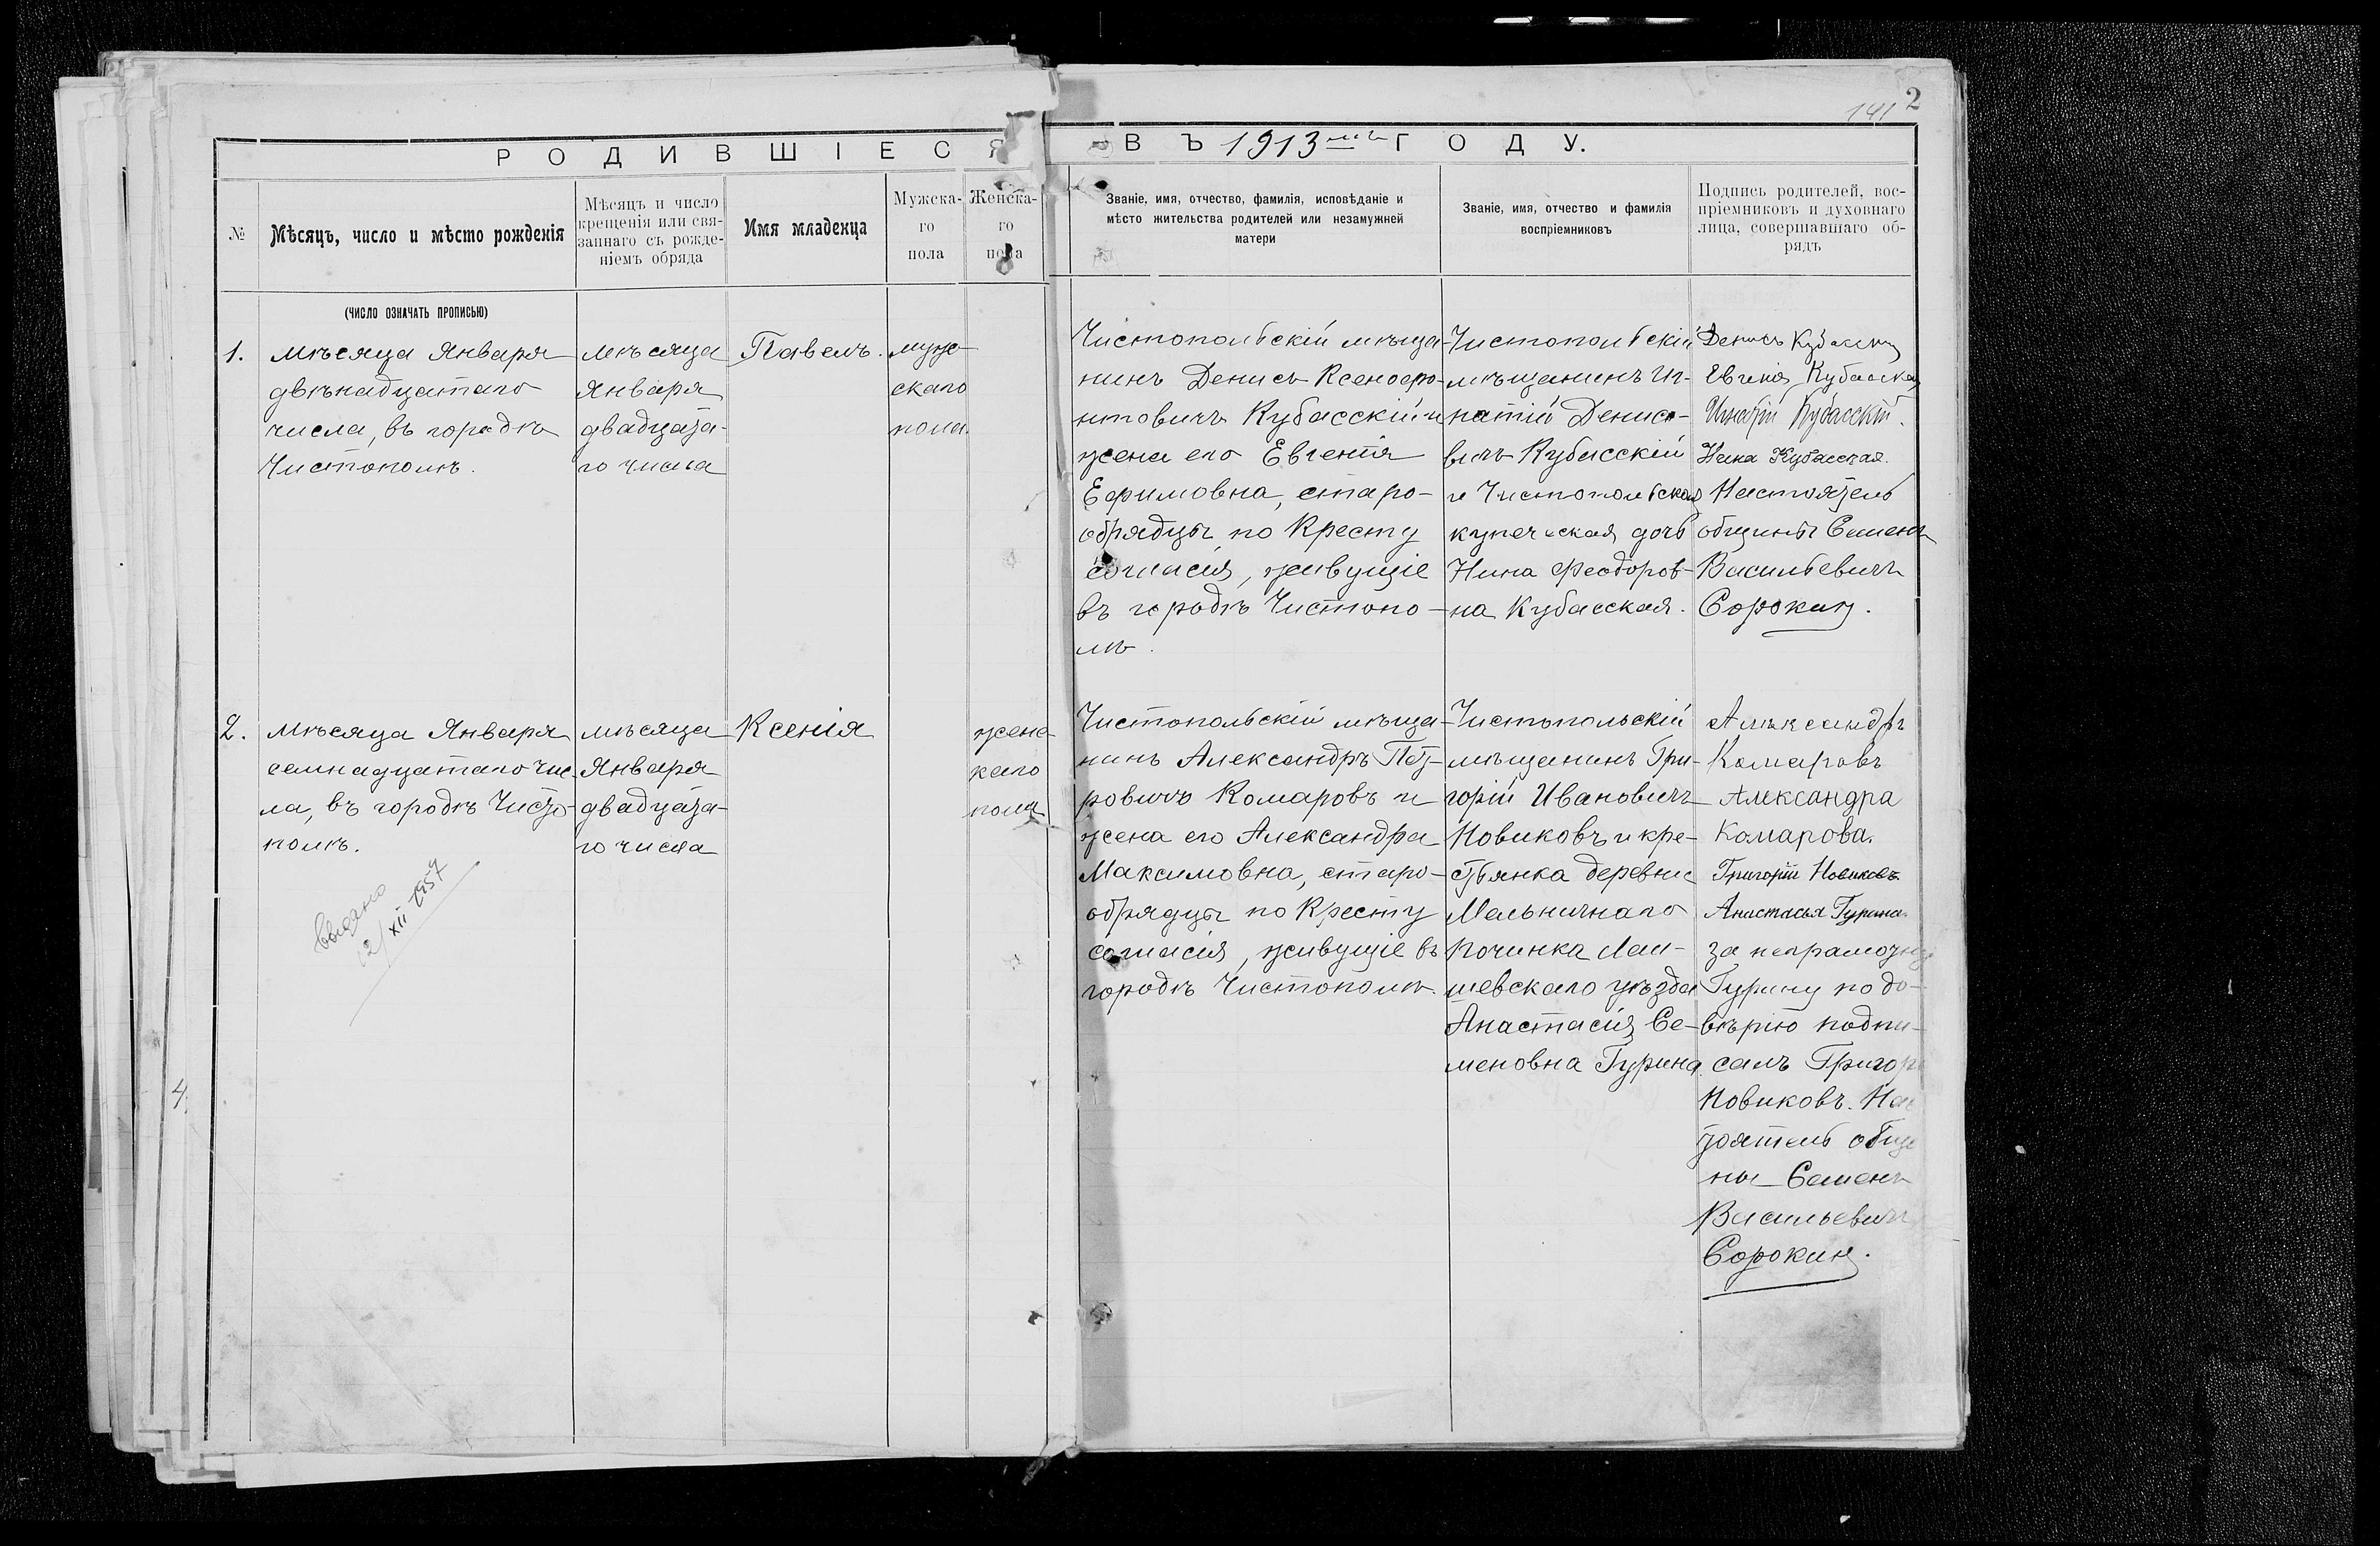 2
141
РОДИВШІЕСЯ
ВЪ 1913 мъ ГОДУ.
№
Мѣсяцъ, число и мѣсто рожденія
Мѣсяцъ и число
крещенія или свя-
заннаго съ рожде-
ніемъ обряда
Имя младенца
Мужска-
го
пола
Женска-
го
пола
Званіе, имя, отчество, фамилія, исповѣданіе и
мѣсто жительства родителей или незамужней
матери
Званіе, имя, отчество и фамилія
воспріемниковъ
Подпись родителей, вос-
пріемниковъ и духовнаго
лица, совершавшаго об-
рядъ
(ЧИСЛО ОЗНАЧАТЬ ПРОПИСЬЮ)
1.
мѣсяца Января
двѣнадцатаго
числа, въ городѣ
Чистополѣ.
мѣсяца
Января
двадцата-
го числа
Павелъ.
муж-
скаго
пола.
Чистопольскій мѣща-
нинъ Денисъ Ксенофо-
нтовичъ Кубасскій и
жена его Евгенія
Ефимовна, старо-
обрядцы по Кресту
согласія, живущіе
въ городѣ Чистопо-
лѣ.
Чистопольскій
мѣщанинъ Иг-
натій Денисо-
вичъ Кубасскій
и Чистопольская
купеческая дочь
Нина Феодоров-
на Кубасская.
Денисъ Кубасскій
Евгенія Кубасская
Игнатій Кубасскій.
Нина Кубасская.
Настоятель
общины Семенъ
Васильевичъ
Сорокин.
2.
мѣсяца Января
семнадцатаго чис-
ла, въ городѣ Чисто-
полѣ.
мѣсяца
Января
двадцата-
го числа
Ксенія
женс
каго
пола
Чистопольскій мѣща-
нинъ Александръ Пет-
ровичъ Комаровъ и
жена его Александра
Максимовна, старо-
обрядцы по Кресту
согласія, живущіе въ
городѣ Чистополѣ.
Чистопольскій
мѣщанинъ Гри-
горій Ивановичъ
Новиковъ и кре-
стьянка деревни
Мельничнаго
Починка Лаи-
шевскаго уѣзда
Анастасія Се-
меновна Гурина.
Александръ
Комаровъ
Александра
Комарова.
Григорій Новиковъ
Анастасья Гурина
за неграмотную
Гурину по до-
вѣрію подпи-
салъ Григорі
Новиковъ. Нас
тоятель общи
ны Семенъ
Васильевичъ
Сорокин.
выдано
12/XII 1957
4.